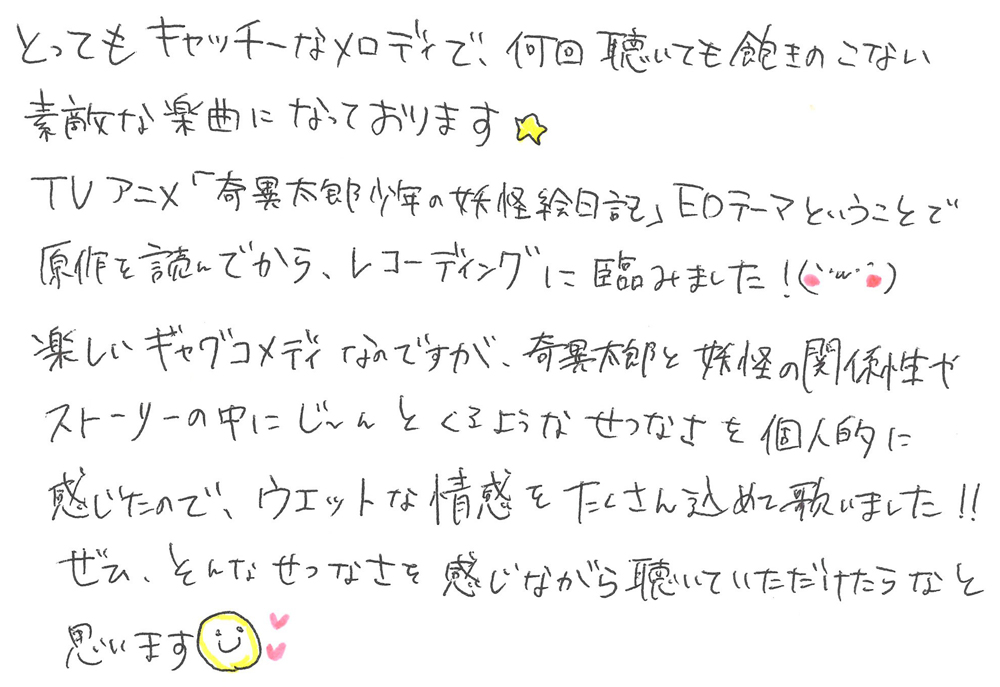 とってもキャッチーなメロディで、何回聴いても飽きのこない
素敵な楽曲になっております☆
TVアニメ「奇異太郎少年の妖怪絵日記」EDテーマということで
原作を読んでから、レコーディングに臨みました!(*･ω･*)
楽しいギャグコメディなのですが、奇異太郎と妖怪の関係性や
ストーリーの中にじ〜んとくるようなせつなさを個人的に
感じたので、ウエットな情感をたくさん込めて歌いました!!
ぜひ、そんなせつなさを感じながら聴いていただけたらなと
思います